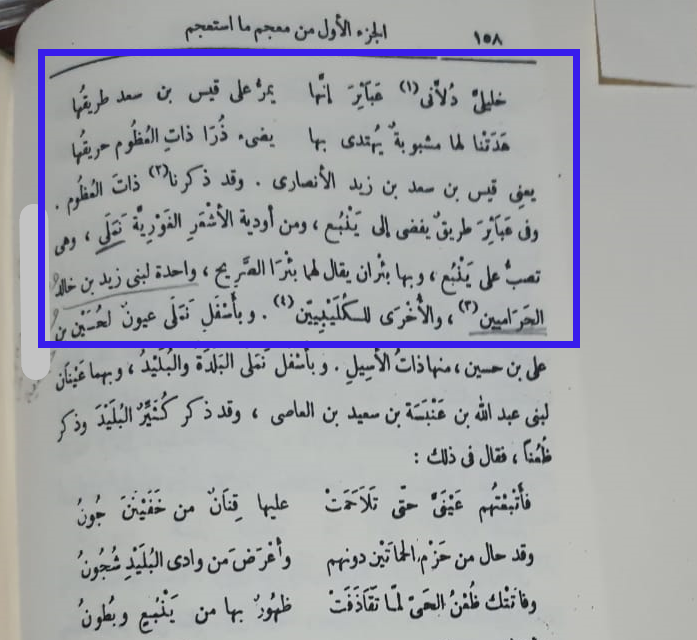 ١٥٨ الجزء الأول من معجم ما استعجم
خليلىَّ دُلاَّنى (١) عَبَاثِرَ إنَّها يمرُّ على قيس بن سعد طريقُها
هَدَتْنا لها مشبوبةٌ يُهتدى بها يضىء ذُرَا ذاتِ العُظُوم حريقُها
يعنى قيس بن سعد بن زيد الأنصارى . وقد ذكرنا (٢) ذاتَ العُظُوم .
وفى عَبَاثِرَ طريقٌ يفضى إلى يَنْبُع ، ومن أودية الأشْعَرِ الغَوْرِيَّة نَمَلَى ، وهى
تصبُّ على يَنْبُع ، وبها بئران يقال لهما بئْرَا الصَّرِيح ، واحدة لبنى زيد بن خالد
الحَرَاميين (٣) ، والأُخْرَى للكُلَيْبِيِّين (٤) . وبأَسْفَلِ نَمَلَى عيونٌ لحُسَيْن بن
على بن حسين ، منها ذاتُ الأَسِيلِ . وبأسْفل نَمَلى البَلْدَةُ والبُلَيْدُ ، وبهما عَيْنَان
لبنى عبد الله بن عَنْبَسَة بن سعيد بن العاصى ، وقد ذكر كُثَيِّرٌ البُلَيْدَ وذكر
ظُعُناً ، فقال فى ذلك :
فأَتْبَعْتُهم عَيْنَىَّ حتَّى تَلاَحَمَتْ عليها قِنَانٌ من خَفَيْنَنَ جُونُ
وقد حال من حَزْم الحمَاتَيْن دونهم وأعْرَضَ من وادى البُلَيْدِ شُجُونُ
وفاتتْك ظُعْنُ الحَىّ لمّا تَقَاذَفَتْ ظهُورٌ بها من يَنْبُعٍ وبُطُونُ